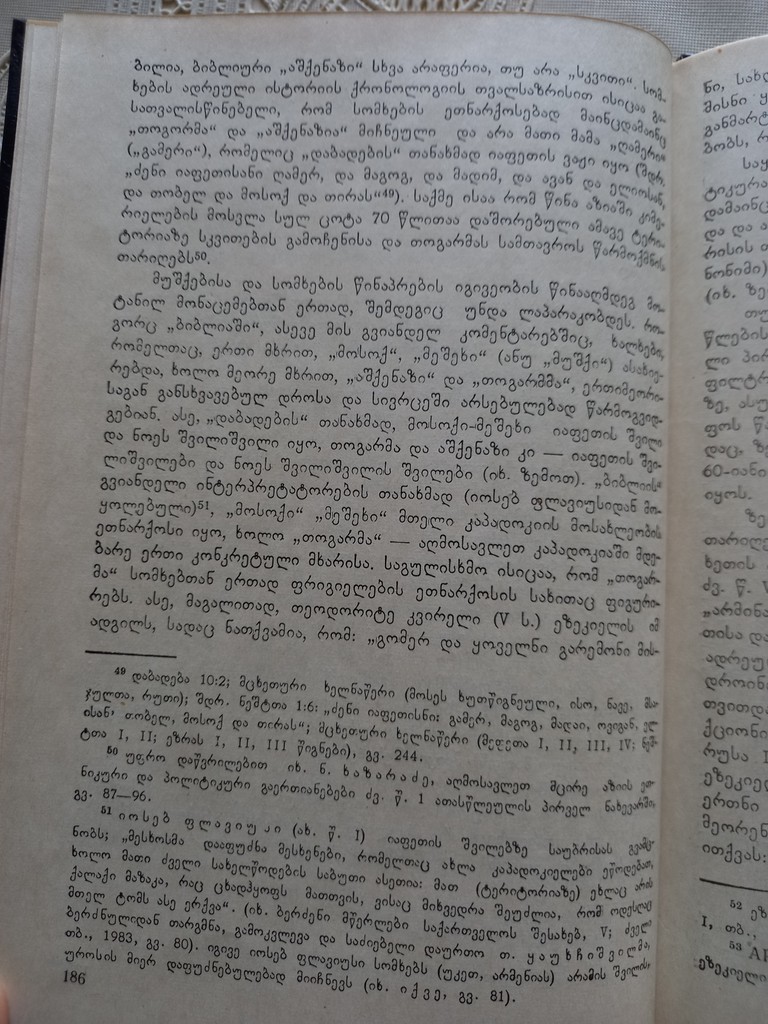 ბილია, ბიბლიური „აშქენაზი“ სხვა არაფერია, თუ არა „სკვითი“. სომ-
ხების ადრეული ისტორიის ქრონოლოგიის თვალსაზრისით ისიცაა გა-
სათვალისწინებელი, რომ სომხების ეთნარქოსებად მაინცდამაინც
„თოგორმა“ და „აშქენაზია“ მიჩნეული და არა მათი მამა „ღამერი“
(„გამერი“), რომელიც „დაბადების“ თანახმად იაფეთის ვაჟი იყო (შდრ.
„ძენი იაფეთისანი ღამერ, და მაგოგ, და მადიმ, და ავან და ელიოსან,
და თობელ და მოსოქ და თირას“49). საქმე ისაა რომ წინა აზიაში კიმე-
რიელების მოსვლა სულ ცოტა 70 წლითაა დაშორებული ამავე ტერი-
ტორიაზე სკვითების გამოჩენისა და თოგარმას სამთავროს წარმოქმნის
თარიღებს50.
მუშქებისა და სომხების წინაპრების იგივეობის წინააღმდეგ მო-
ტანილ მონაცემებთან ერთად, შემდეგიც უნდა ლაპარაკობდეს. რო-
გორც „ბიბლიაში“, ასევე მის გვიანდელ კომენტარებშიც, ხალხები,
რომელთაც, ერთი მხრით, „მოსოქ“, „მეშეხი“ (ანუ „მუშქი“) ასახიე-
რებდა, ხოლო მეორე მხრით, „აშქენაზი“ და „თოგარმმა“, ერთიმეორი-
საგან განსხვავებულ დროსა და სივრცეში არსებულებად წარმოგვიდ-
გებიან. ასე, „დაბადების“ თანახმად, მოსოქი-მეშეხი იაფეთის შვილი
და ნოეს შვილიშვილი იყო, თოგარმა და აშქენაზი კი — იაფეთის შვი-
ლიშვილები და ნოეს შვილიშვილის შვილები (იხ. ზემოთ). „ბიბლიის“
გვიანდელი ინტერპრეტატორების თანახმად (იოსებ ფლავიუსიდან მო-
ყოლებული)51, „მოსოქი“ „მეშეხი“ მთელი კაპადოკიის მოსახლეობის
ეთნარქოსი იყო, ხოლო „თოგარმა“ — აღმოსავლეთ კაპადოკიაში მდე-
ბარე ერთი კონკრეტული მხარისა. საგულისხმო ისიცაა, რომ „თოგარ-
მა“ სომხებთან ერთად ფრიგიელების ეთნარქოსის სახითაც ფიგური-
რებს. ასე, მაგალითად, თეოდორიტე კვირელი (V ს.) ეზეკიელის იმ
ადგილს, სადაც ნათქვამია, რომ: „გომერ და ყოველნი გარემონი მის-
49 დაბადება 10:2; მცხეთური ხელნაწერი (მოსეს ხუთწიგნეული, ისო, ნავე, მსა-
ჯულთა, რუთი); შდრ. ნეშტთა 1:6: „ძენი იაფეთისნი: გამერ, მაგოგ, მადაი, ოვიგან, ელ
ისან, თობელ, მოსოქ და თირას“; მცხეთური ხელნაწერი (მეფეთა I, II, III, IV; ნეშ-
ტთა I, II; ეზრას I, II, III წიგნები), გვ. 244.
50 უფრო დაწვრილებით იხ. ნ. ხაზარაძე, აღმოსავლეთ მცირე აზიის ეთ-
ნიკური და პოლიტიკური გაერთიანებები ძვ. წ. 1 ათასწლეულის პირველ ნახევარში,
გვ. 87—96.
51 იოსებ ფლავიუსი (ახ. წ. I) იაფეთის შვილებზე საუბრისას გვამც-
ნობს; „მესხოსმა დააფუძნა მესხენები, რომელთაც ახლა კაპადოკიელები ეწოდებათ,
ხოლო მათი ძველი სახელწოდების საბუთი ასეთია: მათ (ტერიტორიაზე) ეხლაც არის
ქალაქი მაზაკა, რაც ცხადჰყოფს მათთვის, ვისაც მიხვედრა შეუძლია, რომ ოდესღაც
მთელ ტომს ასე ერქვა“. (იხ. ბერძენი მწერლები საქართველოს შესახებ, V; ძველი
ბერძნულიდან თარგმნა, გამოკვლევა და საძიებელი დაურთო თ. ყაუხჩიშვილმა,
თბ., 1983, გვ. 80). იგივე იოსებ ფლავიუსი სომხებს (უკეთ, არმენიას) არამის შვილის,
უროსის მიერ დაფუძნებულებად მიიჩნევს (იხ. იქვე, გვ. 81).
186